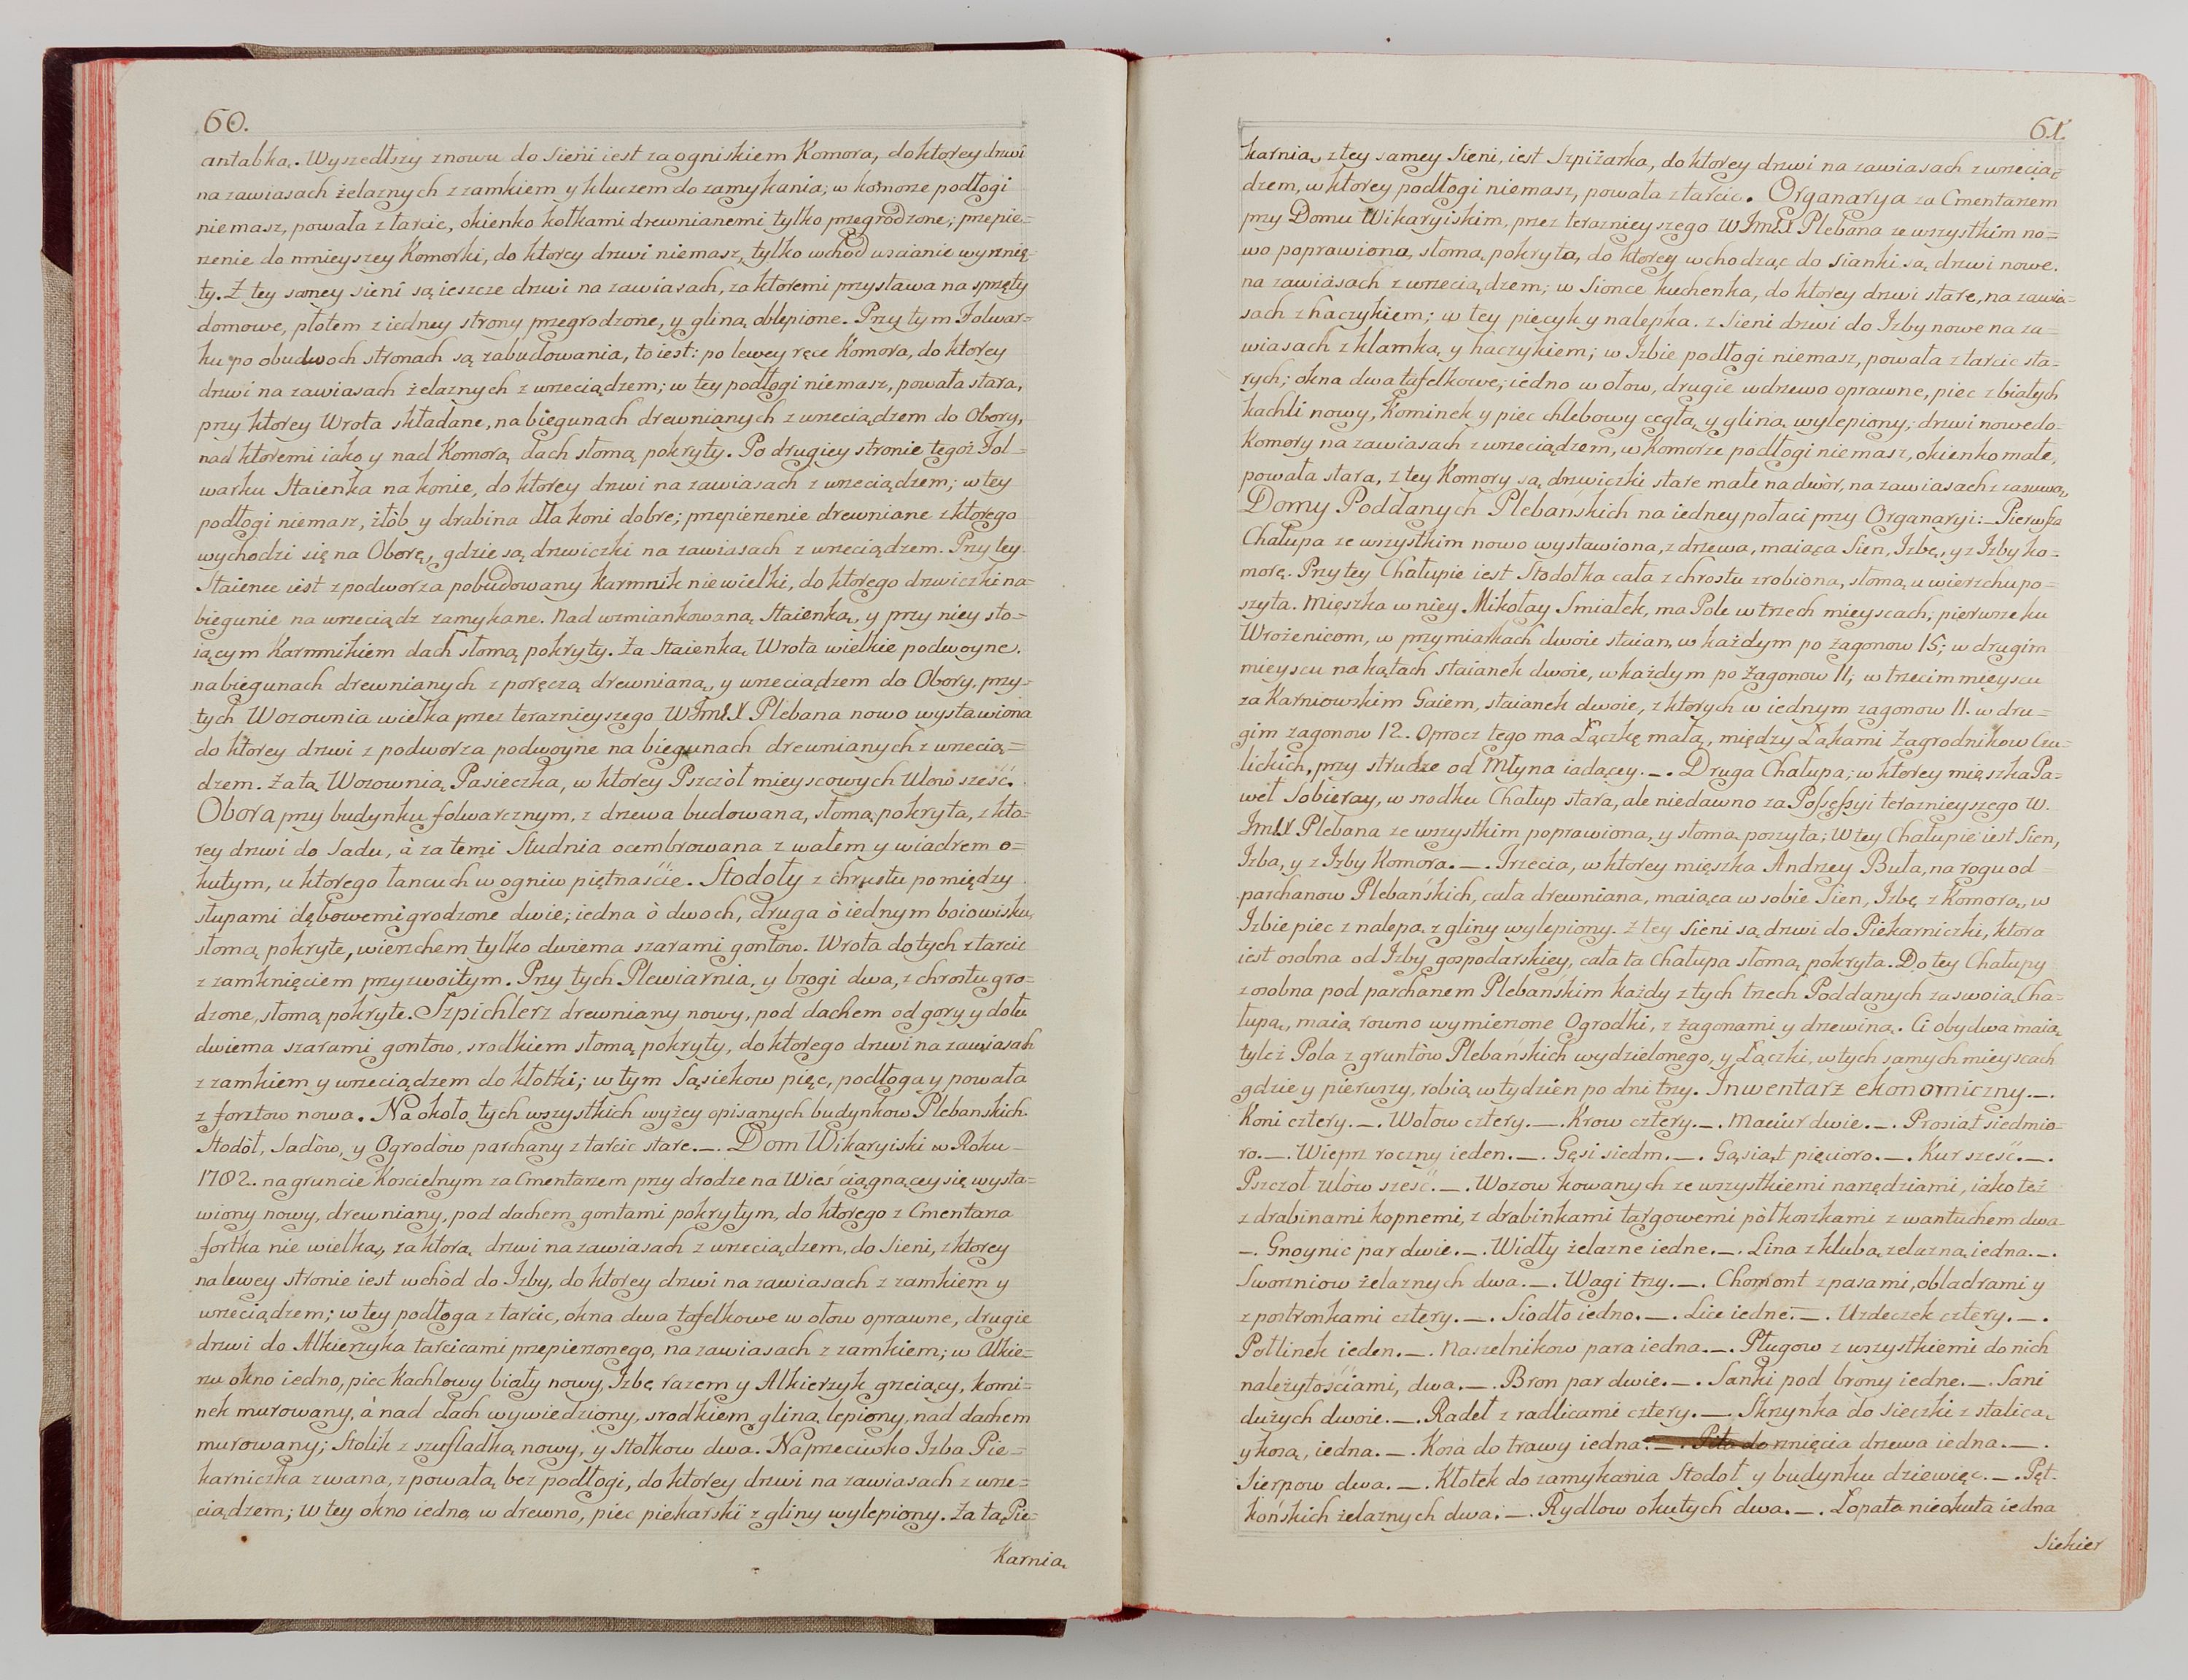 60.
antabką. Wyszedłszy znowu do Sieni iest za ogniskiem Komora, do ktorey drzwi
na zawiasach żelaznych z zamkiem y kluczem do zamykania; w komorze podłogi
nie masz, powała z tarcic, okienko kołkami drewnianemi tylko przegrodzone; przepie=
rzenie do mnieyszey Komorki, do ktorey drzwi niemasz, tylko wchod wscianie wyrznię
ty. Z tey samey sieni są ieszcze drzwi na zawiasach, za ktoremi przystawa na sprzęty
domowe, płotem z iedney strony przegrodzone, y gliną oblepione. Przy tym Folwar=
ku po obudwoch stronach są zabudowania, to iest: po lewey ręce Komora, do ktorey
drzwi na zawiasach żelaznych z wrzeciądzem; w tey podłogi niemasz, powała stara,
przy ktorey Wrota składane, na biegunach drewnianych z wrzeciądzem do Obory,
nad ktoremi iako y nad Komorą dach słomą pokryty. Po drugiey stronie tegoż Fol=
warku Staienka na konie, do ktorey drzwi na zawiasach z wrzeciądzem; w tey
podłogi niemasz, żłób y drabina dla koni dobre; przepierzenie drewniane z ktorego
wychodzi się na Oborę, gdzie są drzwiczki na zawiasach z wrzeciądzem. Przy tey
Staience iest z podworza pobudowany karmnik niewielki, do ktorego drzwiczki na=
biegunie na wrzeciądz zamykane. Nad wzmiankowaną Staienką, y przy niey sto=
iącym Karmnikiem dach słomą pokryty. Za Staienką Wrota wielkie podwoyne.
na biegunach drewnianych z poręczą drewnianą, y wrzeciądzem do Obory. przy=
tych Wozownia wielka przez teraznieyszego WJmX Plebana nowo wystawiona
do ktorey drzwi z podworza podwoyne na biegunach drewnianych z wrzecią=
dzem. Za tą Wozownią Pasieczka, w ktorey Pszczół mieyscowych Ulow sześć.
Obora przy budynku folwarcznym, z drzewa budowana, słomą pokryta, z kto=
rey drzwi do Sadu, à za temi Studnia ocembrowana z wałem y wiadrem o=
kutym, u ktorego łancuch w ogniw piętnaście. Stodoły z chrustu pomiędzy
słupami dębowemi grodzone dwie; iedna ò dwoch, druga ò iednym boiowisku,
słomą pokryte, wierzchem tylko dwiema szarami gontow. Wrota do tych z tarcic
z zamknięciem przyzwoitym. Przy tych Plewiarnia, y brogi dwa, z chrostu gro=
dzone, słomą pokryte. Szpichlerz drewniany nowy, pod dachem od gory y dołu
dwiema szarami gontow, srodkiem słomą pokryty, do ktorego drzwi na zawiasach
z zamkiem y wrzeciądzem do kłotki; w tym Sąsiekow pięc, podłoga y powała
z forztow nowa. Na około tych wszystkich wyżey opisanych budynkow Plebanskich
Stodół, Sadòw, y Ogrodòw parchany z tarcic stare._. Dom Wikaryiski w Roku
1782. na gruncie Koscielnym za Cmentarzem przy drodze na Wieś ciągnącey się wysta=
wiony nowy, drewniany, pod dachem gontami pokrytym, do ktorego z Cmentarza
fortka nie wielka, za ktorą drzwi na zawiasach z wrzeciądzem, do Sieni, z ktorey
na lewey stronie iest wchòd do Izby, do ktorey drzwi na zawiasach z zamkiem y
wrzeciądzem; w tey podłoga z tarcic, okna dwa tafelkowe w ołow oprawne, drugie
drzwi do Alkierzyka tarcicami przepierzonego, na zawiasach z zamkiem; w Alkie=
rzu okno iedno, piec kachlowy biały nowy, Izbę razem y Alkierzyk grzeiący, komi=
nek murowany, à nad dach wywiedziony, srodkiem gliną lepiony, nad dachem
murowany; Stolik z szufladką nowy, y Stołkow dwa. Naprzeciwko Izba Pie=
karniczka zwana, z powałą bez podłogi, do ktorey drzwi na zawiasach z wrze=
ciądzem; w tey okno iedno w drewno, piec piekarski z gliny wylepiony. Za tą Pie=
Karnią
61.
karnią, z tey samey Sieni, iest Szpiżarka, do ktorey drzwi na zawiasach z wrzecią=
dzem, w ktorey podłogi niemasz, powała z tarcic. Organarya za Cmentarzem
przy Domu Wikaryiskim, przez teraznieyszego WJmX Plebana ze wszystkim no=
wo poprawiona, słomą pokryta, do ktorey wchodząc do Sianki są drzwi nowe.
na zawiasach z wrzeciądzem; w Sionce kuchenka, do ktorey drzwi stare, na zawia=
sach z haczykiem; w tey piecyk y nalepka. z Sieni drzwi do Izby nowe na za=
wiasach z klamką y haczykiem; w Izbie podłogi niemasz, powała z tarcic sta=
rych; okna dwa tafelkowe; iedno w ołow, drugie w drzewo oprawne, piec z białych
kachli nowy, Kominek y piec chlebowy cegłą y gliną wylepiony; drzwi nowe do=
Komory na zawiasach z wrzeciądzem, w Komorze podłogi niemasz, okienko małe,
powała stara, z tey Komory są drzwiczki stare małe na dwòr, na zawiasach z zasuwą,
Domy Poddanych Plebańskich na iedney połaci przy Organaryi:_ Pierwsza
Chałupa ze wszystkim nowo wystawiona, z drzewa, maiąca Sien, Izbę, y z Izby ko=
morę. Przy tey Chałupie iest Stodołka cała z chrostu zrobiona, słomą u wierzchu po=
szyta. Mięszka w niey Mikołay Smiałek, ma Pole w trzech mieyscach; pierwsze ku
Wrożenicom, w przymiarkach dwoie staian, w każdym po żagonow 15; w drugim
mieyscu na kątach staianek dwoie, w każdym po Zagonow 11; w trzecim mieyscu
za Karniowskim Gaiem, staianek dwoie, z ktorych w iednym zagonow 11. w dru=
gim zagonow 12. oprocz tego ma Łączkę małą, między Łąkami Zagrodnikow Czu=
lickich, przy strudze od Młyna iadącey._. Druga Chałupa; w ktorey mięszka Pa=
weł Sobieray, w srodku Chałup stara, ale niedawno za Possessyi teraznieyszego W.
JmX Plebana ze wszystkim poprawiona, y słomą poszyta; W tey Chałupie iest Sien,
Izba, y z Izby Komora._. Trzecia, w ktorey mięszka Andrzey Buła, na rogu od
parchanow Plebańskich, cała drewniana, maiąca w sobie Sien, Izbę z Komorą, w
Izbie piec z nalepą z gliny wylepiony. Z tey Sieni są drzwi do Piekarniczki, ktora
iest osobna od Izby gospodarskiey, cała ta Chałupa słomą pokryta. Do tey Chałupy
z osobna pod parchanem Plebańskim każdy z tych trzech Poddanych za swoią Cha=
łupą, maią rowno wymierzone Ogrodki, z żagonami y drzewiną. Ci obydwa maią
tyleż Pola z gruntòw Plebańskich wydzielonego, y Łączki, w tych samych mieyscach
gdzie y pierwszy, robią w tydzien po dni trzy. Inwentarz ekonomiczny._.
Koni cztery._. Wołow cztery._. Krow cztery._. Maciur dwie._. Prosiąt siedmio=
ro._. Wieprz roczny ieden._. Gęsi siedm._. Gąsiąt pięcioro._. Kur sześć._.
Pszczoł Ulòw sześć._. Wozow kowanych ze wszystkiemi narzędziami, iako też
z drabinami kopnemi, z drabinkami targowemi pòłkoszkami z wantuchem dwa
_. Gnoynic par dwie._. Widły żelazne iedne._. Lina z klubą żelazną iedna._.
Sworzniow żelaznych dwa._. Wagi trzy._. Chomont z pasami, obladrami y
z postronkami cztery._. Siodło iedno._. Lice iedne._. Uzdeczek cztery._.
Połlinek ieden._. Naszelnikow para iedna._. Pługow z wszystkiemi do nich
należytościami, dwa._. Bron par dwie._. Sanki pod brony iedne._. Sani
dużych dwoie._. Radeł z radlicami cztery._. Skrzynka do sieczki z stalicą
y kosą, iedna._. Kosa do trawy iedna._. Piła do rznięcia drzewa iedna._.
Sierpow dwa._. Kłotek do zamykania Stodoł y budynku dziewięc._. Pęt
końskich żelaznych dwa._. Rydlow okutych dwa._. Łopata nieokuta iedna
Siekier